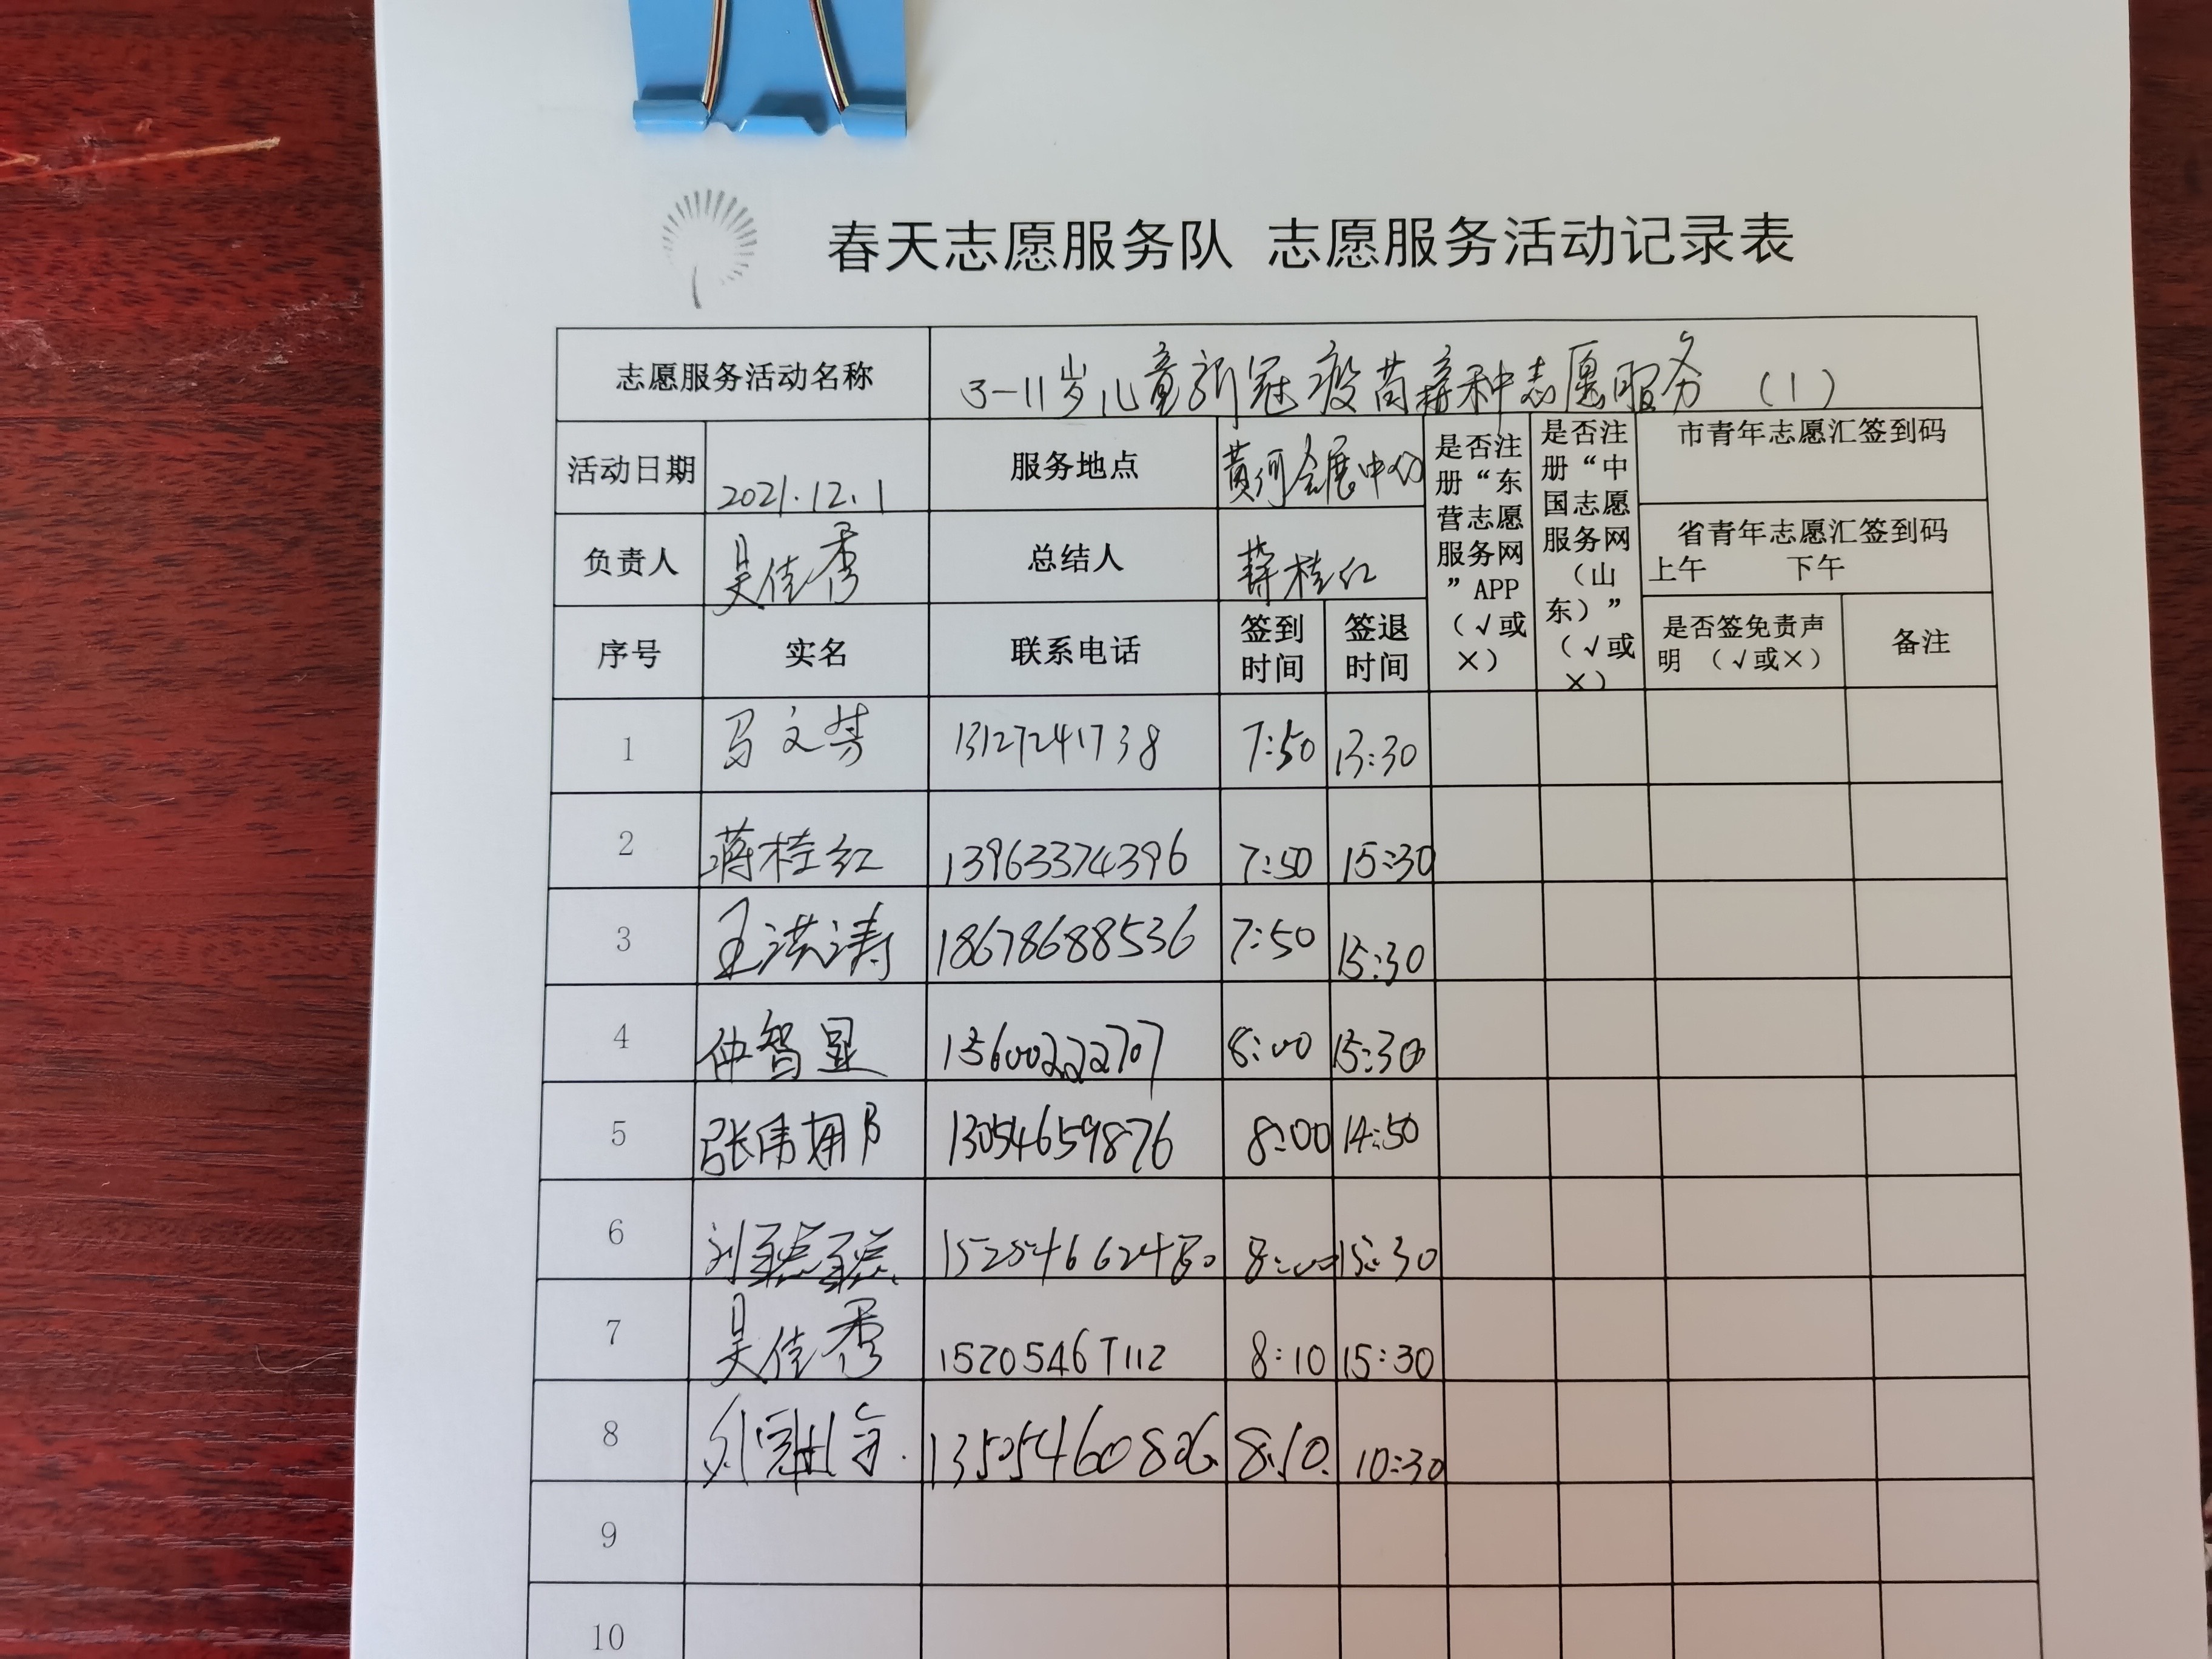 春天志愿服务队 志愿服务活动记录表
志愿服务活动名称 3-11岁儿童新冠疫苗接种志愿服务 (1)
活动日期 2021.12.1 服务地点 黄河会展中心
是否注册“东营志愿服务网”APP（√或×）
是否注册“中国志愿服务网（山东）”（√或×）
市青年志愿汇签到码
负责人 吴佳秀 总结人 蒋桂红
省青年志愿汇签到码
上午 下午
序号 实名 联系电话 签到时间 签退时间 是否签免责声明（√或×） 备注
1 马文芳 13127241738 7:50 13:30
2 蒋桂红 13963374396 7:50 15:30
3 王洪涛 18678688536 7:50 15:30
4 仲智显 13600222707 8:00 15:30
5 张伟娜 13054659876 8:00 14:50
6 刘 15254662480 8:00 15:30
7 吴佳秀 15205467112 8:10 15:30
8 13525460826 8:10 10:30
9
10